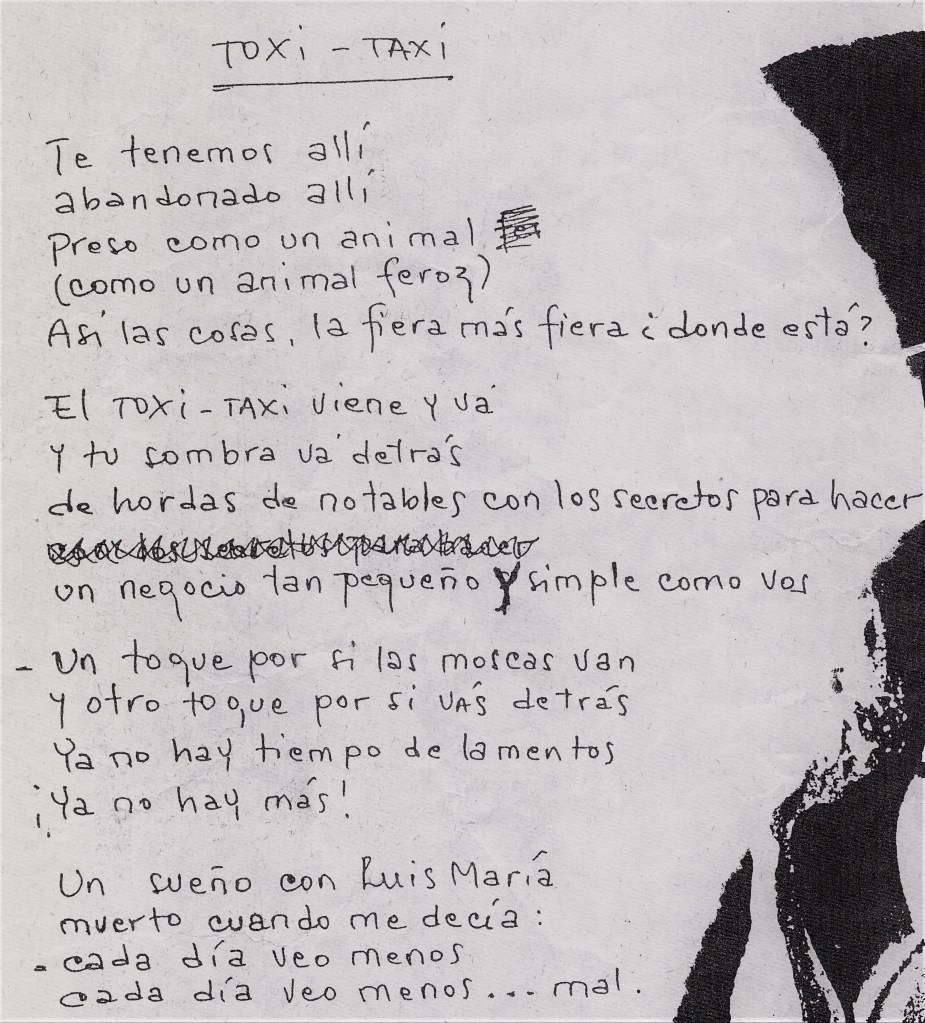 TOXi - TAXi
Te tenemos allí
abandonado allí
Preso como un animal
(como un animal feroz)
Así las cosas, la fiera más fiera ¿ donde está?
El TOXi - TAXi viene y vá
Y tu sombra vá detrás
de hordas de notables con los secretos para hacer
un negocio tan pequeño y simple como vos
- Un toque por si las moscas van
Y otro toque por si vás detrás
Ya no hay tiempo de lamentos
¡Ya no hay más!
Un sueño con Luis María
muerto cuando me decía:
- cada día veo menos
cada día veo menos... mal.